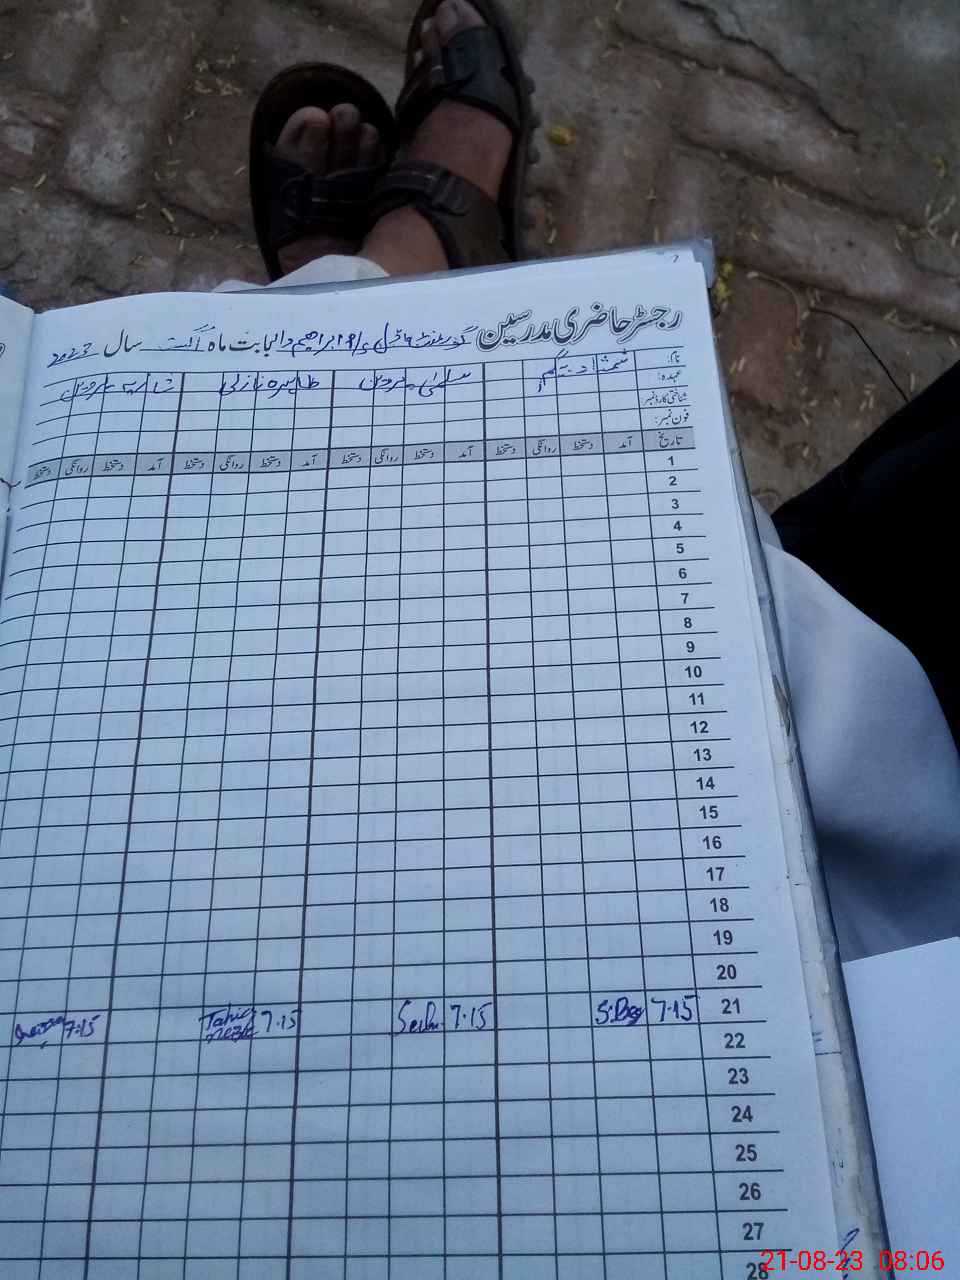 رجسٹر حاضری مدرسین گورنمنٹ ماڈل ابراہیم والا بابت ماہ اگست سال 2023
نام: شمشاد بیگم سلمیٰ پروین طاہرہ نازلی شازیہ پروین
عہدہ:
شناختی کارڈ نمبر:
فون نمبر:
تاریخ آمد دستخط روانگی دستخط آمد دستخط روانگی دستخط آمد دستخط روانگی دستخط آمد دستخط روانگی دستخط
1
2
3
4
5
6
7
8
9
10
11
12
13
14
15
16
17
18
19
20
21 7.15 S.Beg 7.15 7.15 Tahira 7.15
22
23
24
25
26
27
28
21-08-23 08:06